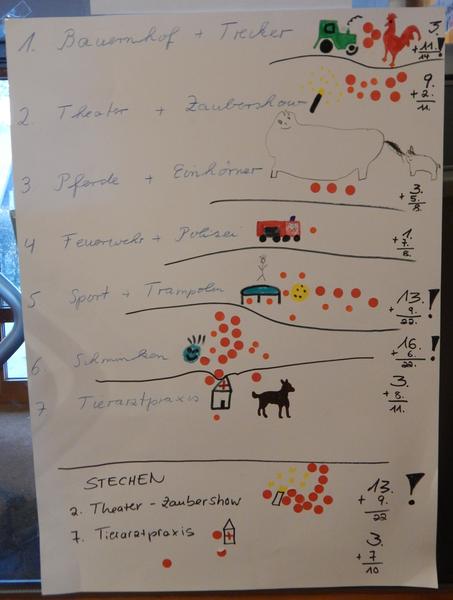 1. Bauernhof + Trecker 3. + 11. 14 !
2. Theater + Zaubershow 9. + 2. 11.
3 Pferde + Einhörner 3. + 5. 8.
4 Feuerwehr + Polizei 1. + 7. 8.
5 Sport + Trampolin 13. + 9. 22. !
6 Schminken 16. + 6. 22. !
7 Tierarztpraxis 3. + 8. 11.
STECHEN
2. Theater - Zaubershow 13. + 9. 22 !
7. Tierarztpraxis 3. + 7 10